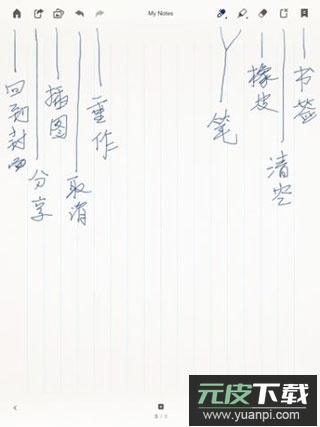 My Notes
回到封面
分享
插图
取消
重作
笔
橡皮
清空
书签
元皮下载
www.yuanpi.com